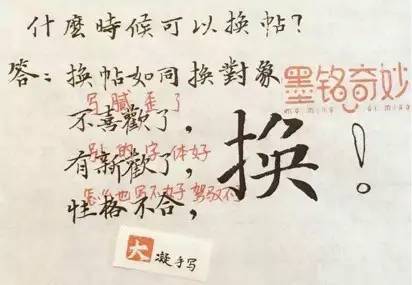 什麼時候可以換帖？
答：換帖如同換對象
墨铭奇妙
写腻歪了
不喜歡了，
别的字体好
有新歡了，
怎么也写不好 驾驭不
性格不合，
换！
大 凝手写